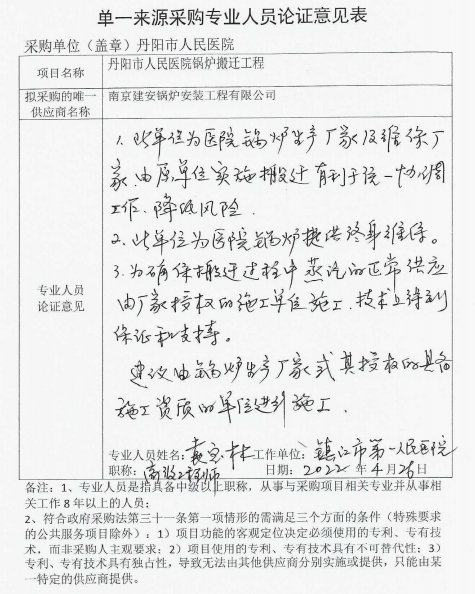 单一来源采购专业人员论证意见表
采购单位（盖章）丹阳市人民医院
项目名称
丹阳市人民医院锅炉搬迁工程
拟采购的唯一
供应商名称
南京建安锅炉安装工程有限公司
专业人员
论证意见
1. 此单位为医院锅炉生产厂家及维保厂
家，由原单位实施搬迁有利于统一协调
工作、降低风险.
2. 此单位为医院锅炉提供终身维保。
3. 为确保搬迁过程中蒸汽的正常供应
由厂家授权的施工单位施工、技术上得到
保证和支持。
建议由锅炉生产厂家或其授权的具备
施工资质的单位进行施工.
专业人员姓名: 林工作单位: 镇江市第一人民医院
职称: 高级工程师 日期: 2022年4月26日
备注：1、专业人员是指具备中级以上职称，从事与采购项目相关专业并从事相
关工作8年以上的人员；
2、符合政府采购法第三十一条第一项情形的需满足三个方面的条件（特殊要求
的公共服务项目除外）：1）项目功能的客观定位决定必须使用的专利、专有技
术，而非采购人主观要求；2）项目使用的专利、专有技术具有不可替代性；3）
专利、专有技术具有独占性，导致无法由其他供应商分别实施或提供，只能由某
一特定的供应商提供。